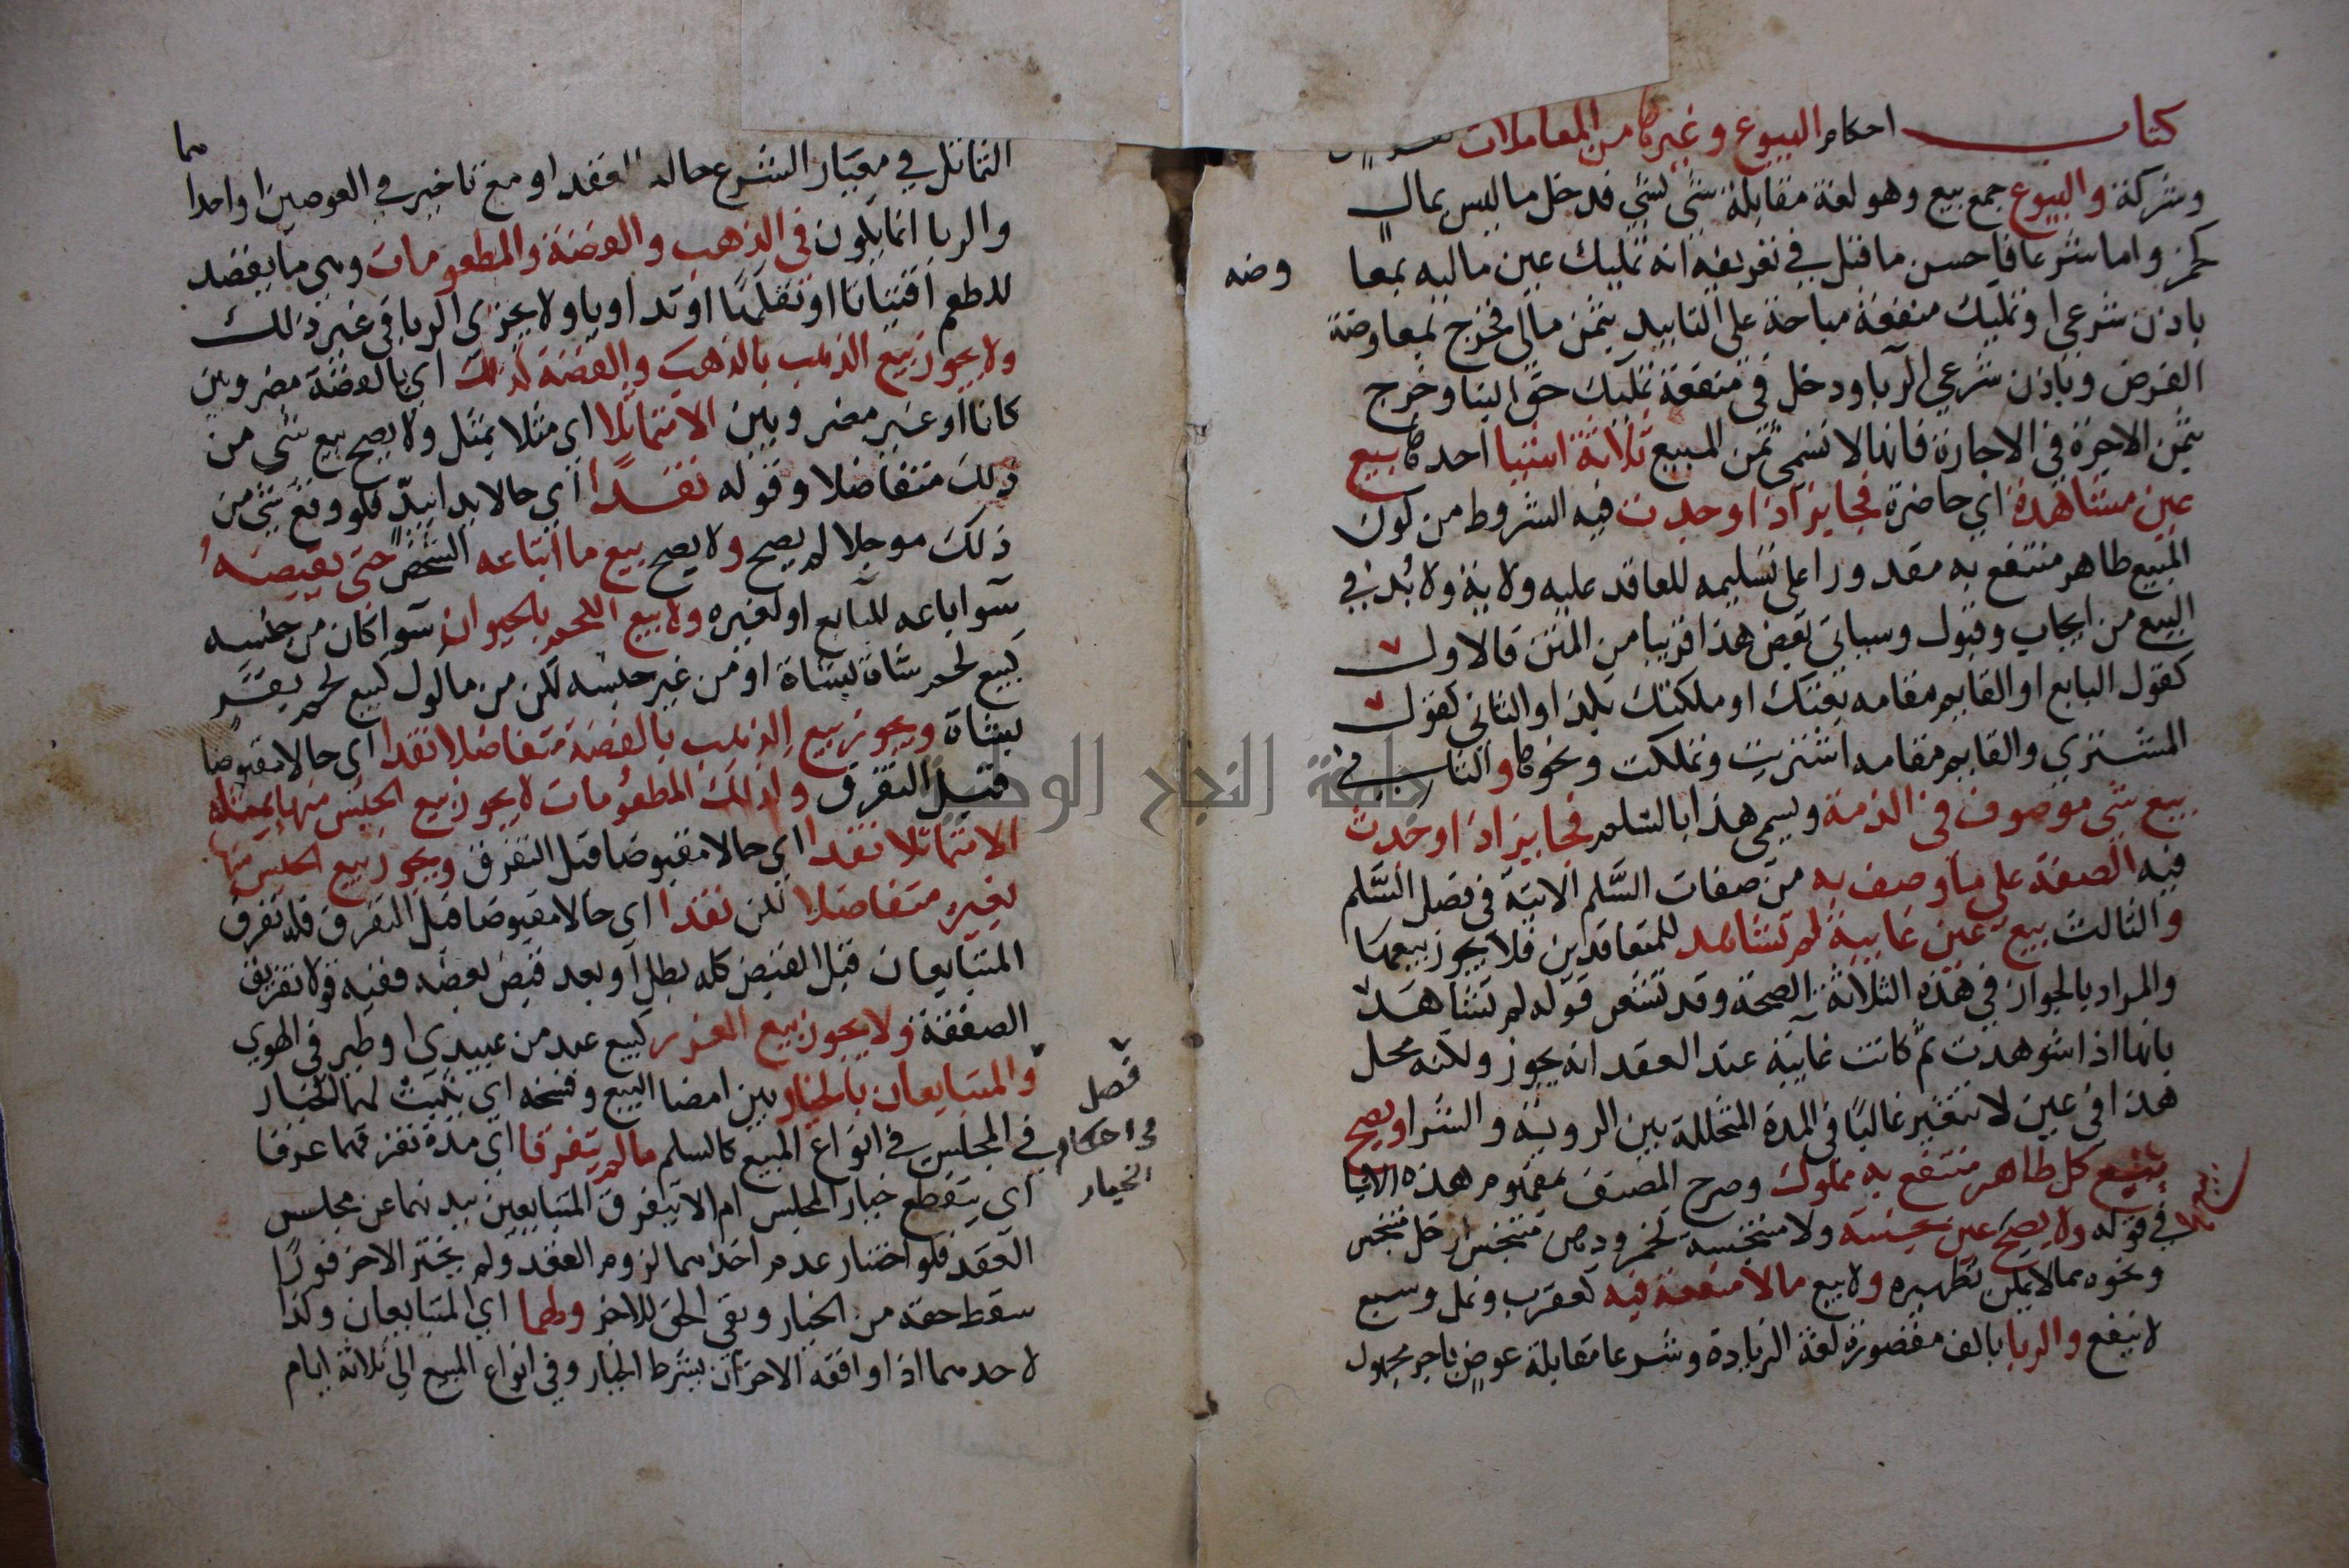 كتاب احكام البيوع وغيرها من المعاملات
وشركة والبيوع جمع بيع وهو لغة مقابلة شى بشي فدخل ما ليس بمال
كخمر واما شرعا فاحسن ما قيل في تعريفه انه تمليك عين ماليه بمعا وضه
باذن شرعي او تمليك منفعة مباحة على التابيد بثمن مالي فخرج بمعاوضة
القرض وباذن شرعي الربا ودخل في منفعة تمليك حق البنا وخرج
بثمن الاجرة في الاجارة فانها لا تسمى ثمن المبيع ثلاثة اشيا احدها بيع
عين مشاهدة اي حاضرة فجايز اذا وجدت فيه الشروط من كون
المبيع طاهر منتفع به مقدورا على تسليمه للعاقد عليه ولاية ولا بد في
البيع من ايجاب وقبول وسياتي بعض هذا قريبا من المتن فالاول
كقول البايع او القايم مقامه بعتك او ملكتك بكذا والثاني كقول
المشتري والقايم مقامه اشتريت وتملكت ونحوها والثاني
بيع شي موصوف في الذمة ويسمى هذا بالسلم فجايز اذا وجدت
فيه الصفة على ما وصف به من صفات السلم الاتية في فصل السلم
والثالث بيع عين غايبة لم تشاهد للمتعاقدين فلا يجوز بيعها
والمراد بالجواز في هذه الثلاثة الصحة وقد تشعر قوله لم تشاهد
بانها اذا شوهدت ثم كانت غايبة عند العقد انه يجوز ولكنه محل
هذا في عين لا تتغير غالبا في المدة المتخللة بين الروية والشرا ويصح
بيع كل طاهر منتفع به مملوك وصرح المصنف بمفهوم هذه الاشيا
في قوله ولا يصح عين نجسة ولا متنجسة كخمر ودهن متنجس وخل متنجس
ونحوه مما لا يمكن تطهيره ولا بيع ما لا منفعة فيه كعقرب ونمل وسبع
لا ينفع والربا بالف مقصورة لغة الزيادة وشرعا مقابلة عوض باخر مجهول
التماثل في معيار الشرع حالة العقد او مع تاخير في العوضين او احدا
هما
والربا انما يكون في الذهب والفضة والمطعومات وهي ما يقصد
للطعم اقتياتا او تفكها او تداويا ولا يجري الربا في غير ذلك
ولا يجوز بيع الذهب بالذهب والفضة كذلك اي بالفضة مضروبين
كانا او غير مضروبين الا متماثلا اي مثلا بمثل ولا يصح بيع شي من
ذلك متفاضلا وقوله نقدا اي حالا يدا بيد فلو وقع شي من
ذلك موجلا لم يصح ولا يصح بيع ما ابتاعه الشخص حتى يقبضه
سوا باعه للبايع او لغيره ولا بيع اللحم بالحيوان سوا كان من جنسه
كبيع لحم شاة بشاة او من غير جنسه لكن من ماكول كبيع لحم بقر
بشاة ويجوز بيع الذهب بالفضة متفاضلا نقدا اي حالا مقبوضا
قبل التفرق وكذلك المطعومات لا يجوز بيع الجنس منها بمثله
الا متماثلا نقدا اي حالا مقبوضا قبل التفرق ويجوز بيع الجنس منها
بغيره متفاضلا لكن نقدا اي حالا مقبوضا قبل التفرق فلو تفرق
المتبايعان قبل القبض كله بطل او بعد قبض بعضه ففيه قولا تفريق
الصفقة ولا يجوز بيع الغرر كبيع عبد من عبيدي او طير في الهوي
والمتبايعان بالخيار بين امضا البيع وفسخه اي يثبت لهما الخيار
فصل
في احكام
الخيار
في المجلس في انواع المبيع كالسلم ما لم يتفرقا اي مدة تفرقهما عرفا
اي ينقطع خيار المجلس ام الا يتفرق المتبايعين ببدنهما عن مجلس
العقد فلو اختار عدم احدهما لزوم العقد ولم يختر الاخر فورا
سقط حقه من الخيار وبقي الحق للاخر ولهما اي المتبايعان وكذا
لاحدهما اذا وافقه الاخر ان يشرط الخيار وفي انواع المبيع الي ثلاثة ايام
جامعة النجاح الوطنية